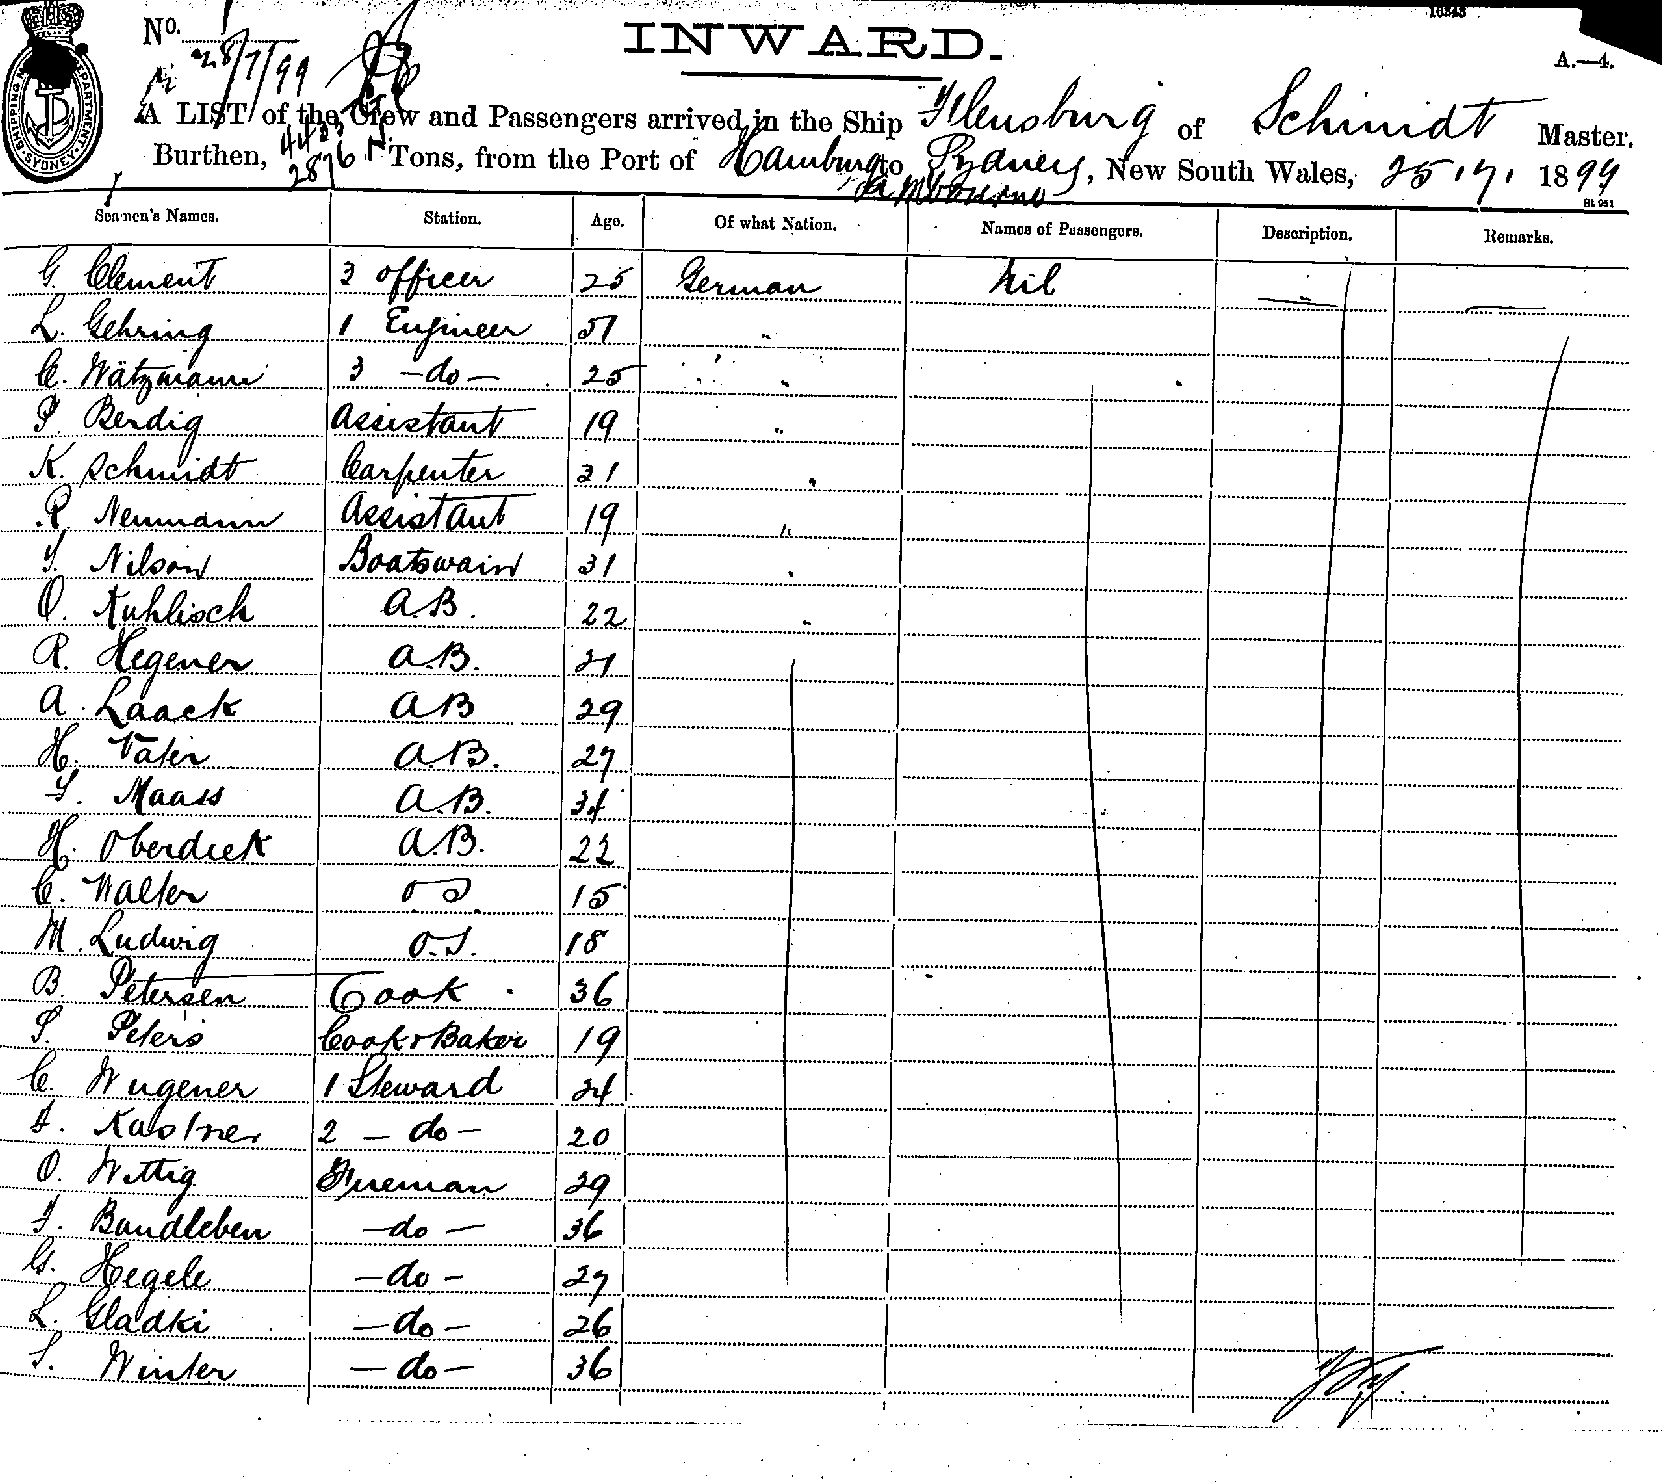 10343
No.
INWARD.
28/7/99
A.—4.
A LIST of the Crew and Passengers arrived in the Ship Flensburg of Schmidt Master.
Burthen, 4423 2876 N. Tons, from the Port of Hamburg to Sydney, New South Wales, 25.7.1899
via Melbourne
SHIPPING DEPARTMENT. SYDNEY.
Seamen's Names. Station. Age. Of what Nation. Names of Passengers. Description. Remarks.
G. Clement 3 officer 25 German Nil
L. Gehring 1 Engineer 51 "
C. Wätzmann 3 —do— 25 "
P. Berdig Assistant 19 "
K. Schmidt Carpenter 31 "
R. Neumann Assistant 19 "
Nilson Boatswain 31 "
O. Kuhlisch A.B. 22 "
R. Hegener A.B. 21
A. Laack A.B 29
H. Vater A.B. 27
Maass A.B. 34
H. Oberdiek A.B. 22
C. Walter O S. 15
M. Ludwig O.S. 18
B. Petersen Cook 36
P. Peters Cook & Baker 19
C. Wugener 1 Steward 24
Kastner 2 — do — 20
O. Wittig Fireman 29
Bandleben —do— 36
G. Hegele —do— 27
L. Gladki —do— 26
Winter —do— 36